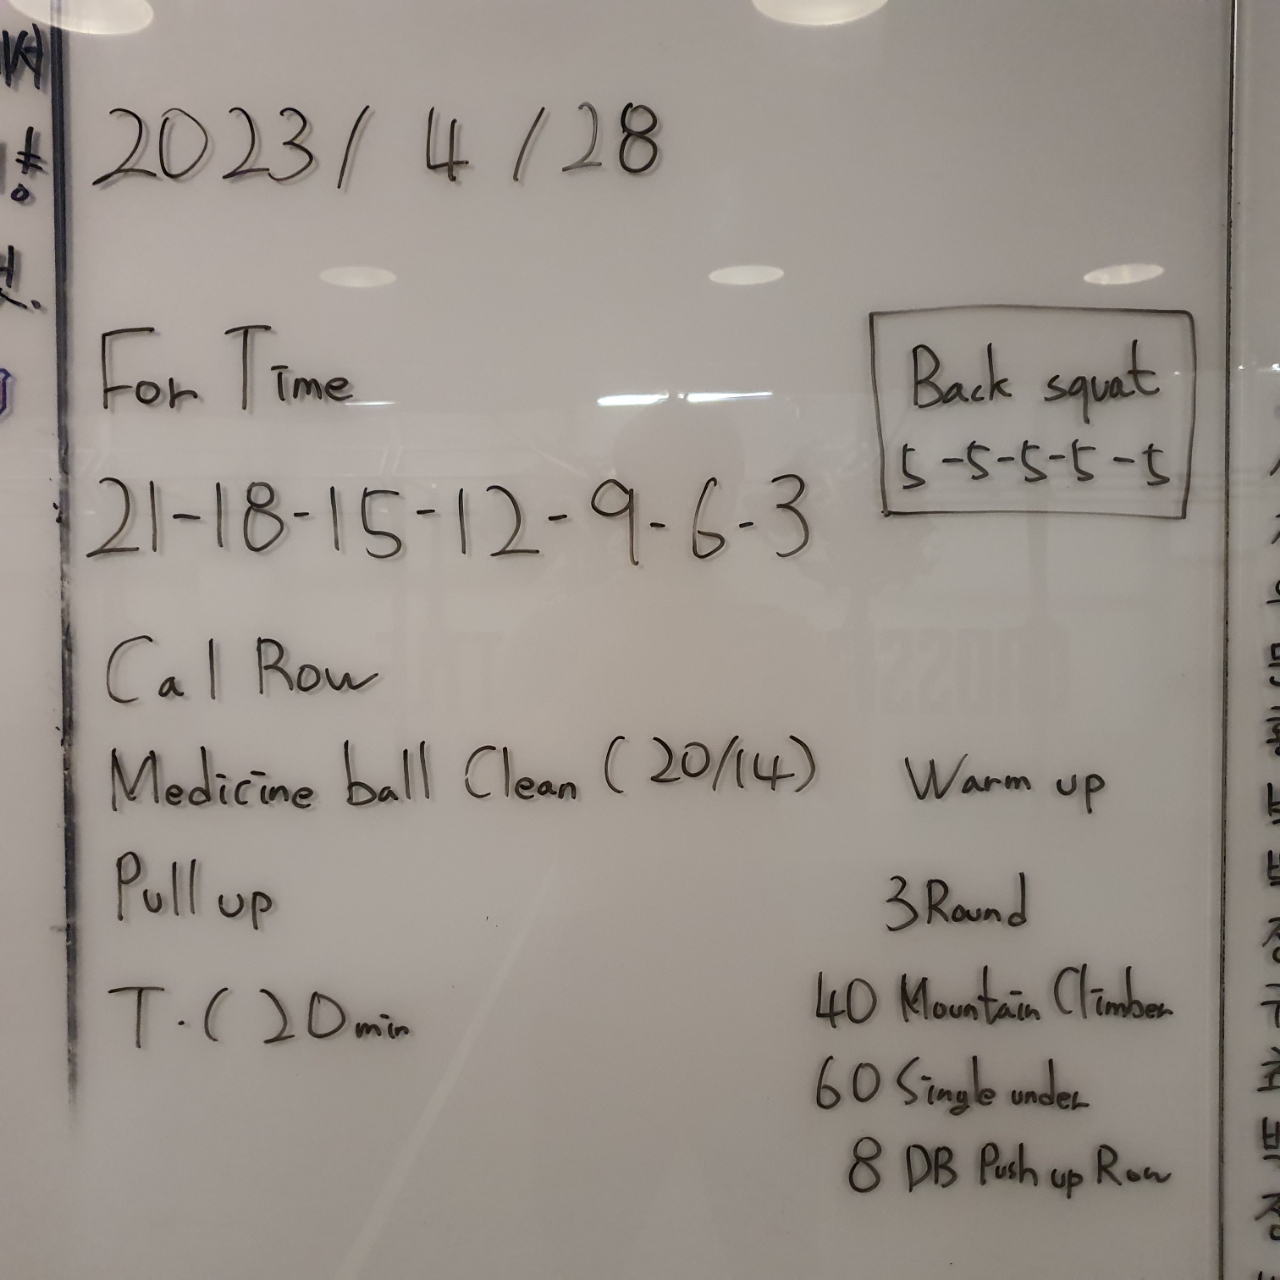 2023 / 4 / 28
For Time
21-18-15-12-9-6-3
Cal Row
Medicine ball Clean (20/14)
Pull up
T.C 20min
Back squat
5-5-5-5-5
Warm up
3 Round
40 Mountain Climber
60 Single under
8 DB Push up Row